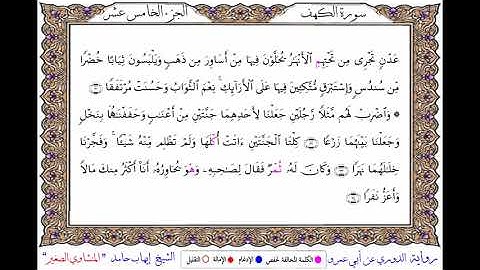 سورة الكهف
الجزء الخامس عشر
عَدۡنٖ تَجۡرِي مِن تَحۡتِهِمِ ٱلۡأَنۡهَٰرُ يُحَلَّوۡنَ فِيهَا مِنۡ أَسَاوِرَ مِن ذَهَبٖ وَيَلۡبَسُونَ ثِيَابًا خُضۡرٗا
مِّن سُندُسٖ وَإِسۡتَبۡرَقٖ مُّتَّكِـِٔينَ فِيهَا عَلَى ٱلۡأَرَآئِكِۚ نِعۡمَ ٱلثَّوَابُ وَحَسُنَتۡ مُرۡتَفَقٗا
۞ وَٱضۡرِبۡ لَهُم مَّثَلٗا رَّجُلَيۡنِ جَعَلۡنَا لِأَحَدِهِمَا جَنَّتَيۡنِ مِنۡ أَعۡنَٰبٖ وَحَفَفۡنَٰهُمَا بِنَخۡلٖ
وَجَعَلۡنَا بَيۡنَهُمَا زَرۡعٗا كِلۡتَا ٱلۡجَنَّتَيۡنِ ءَاتَتۡ أُكۡلَهَا وَلَمۡ تَظۡلِم مِّنۡهُ شَيۡـٔٗاۚ وَفَجَّرۡنَا
خِلَٰلَهُمَا نَهَرٗا وَكَانَ لَهُۥ ثُمۡرٞ فَقَالَ لِصَٰحِبِهِۦ وَهۡوَ يُحَاوِرُهُۥٓ أَنَا۠ أَكۡثَرُ مِنكَ مَالٗا
وَأَعَزُّ نَفَرٗا
رواية الدوري عن أبي عمرو
الكلمة المخالفة لحفص
الإدغام
الإمالة
التقليل
الشيخ إيهاب حامد "المنشاوي الصغير"